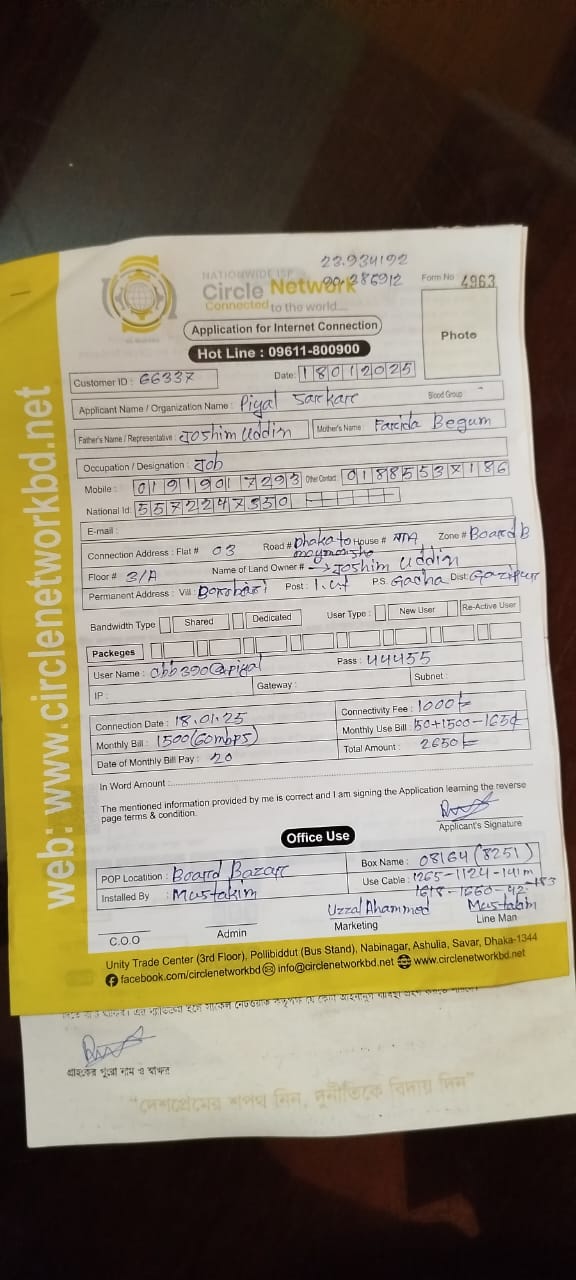 23.934192
90.286912
NATIONWIDE ISP
Circle Network
Connected to the world....
Form No 4963
Application for Internet Connection
Photo
Hot Line : 09611-800900
Customer ID : 66337 Date: 18012025
Applicant Name / Organization Name : Piyal Sarkar Blood Group -
Father's Name / Representative : Joshim Uddin Mother's Name : Farida Begum
Occupation / Designation : Job
Mobile : 01919017293 Other Contact
National Id: 5572247350
E-mail :
Connection Address : Flat # 03 Road # Dhaka to House # N/A Zone # Board B
Floor # 3/A Name of Land Owner # → Joshim Uddin
Permanent Address : Vill: Post : P.S. Gacha Dist: Gazipur
Bandwidth Type Shared Dedicated User Type : New User Re-Active User
Packeges
User Name : Pass : 44455
IP : Gateway : Subnet :
Connection Date : 18.01.25 Connectivity Fee : 1000/-
Monthly Bill : 1500 (60mbps) Monthly Use Bill : 150+1500-1650
Date of Monthly Bill Pay : 20 Total Amount : 2650/-
In Word Amount :
The mentioned information provided by me is correct and I am signing the Application learning the reverse
page terms & condition.
Applicant's Signature
Office Use
POP Locatition : Board Bazar Box Name : 08164 (8251)
Installed By : Mustakim Use Cable : 1265-1124-141m
1618-1660-42
Uzzal Ahammed Mustakim
C.O.O Admin Marketing Line Man
Unity Trade Center (3rd Floor), Pollibiddut (Bus Stand), Nabinagar, Ashulia, Savar, Dhaka-1344
facebook.com/circlenetworkbd info@circlenetworkbd.net www.circlenetworkbd.net
web: www.circlenetworkbd.net
গ্রাহকের পুরো নাম ও স্বাক্ষর
"দেশপ্রেমের শপথ নিন, দুর্নীতিকে বিদায় দিন"